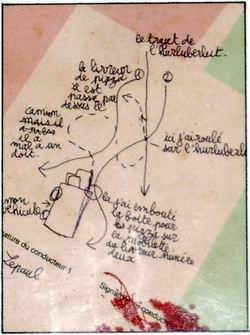 le trajet de
l'hurluberlut.
le livreur
de pizza
il est
passé par
dessus le
1
2
camion
mais il
très
il a
mal a un
doit.
ici j'ai roulé
sur l'hurluberlut
mon
véhicule
là j'ai embouti
la boîte pour
les pizza sur
la mobilette
du livreur numéro
deux
ature du conducteur 1
Lepaul
Signature du conducteur